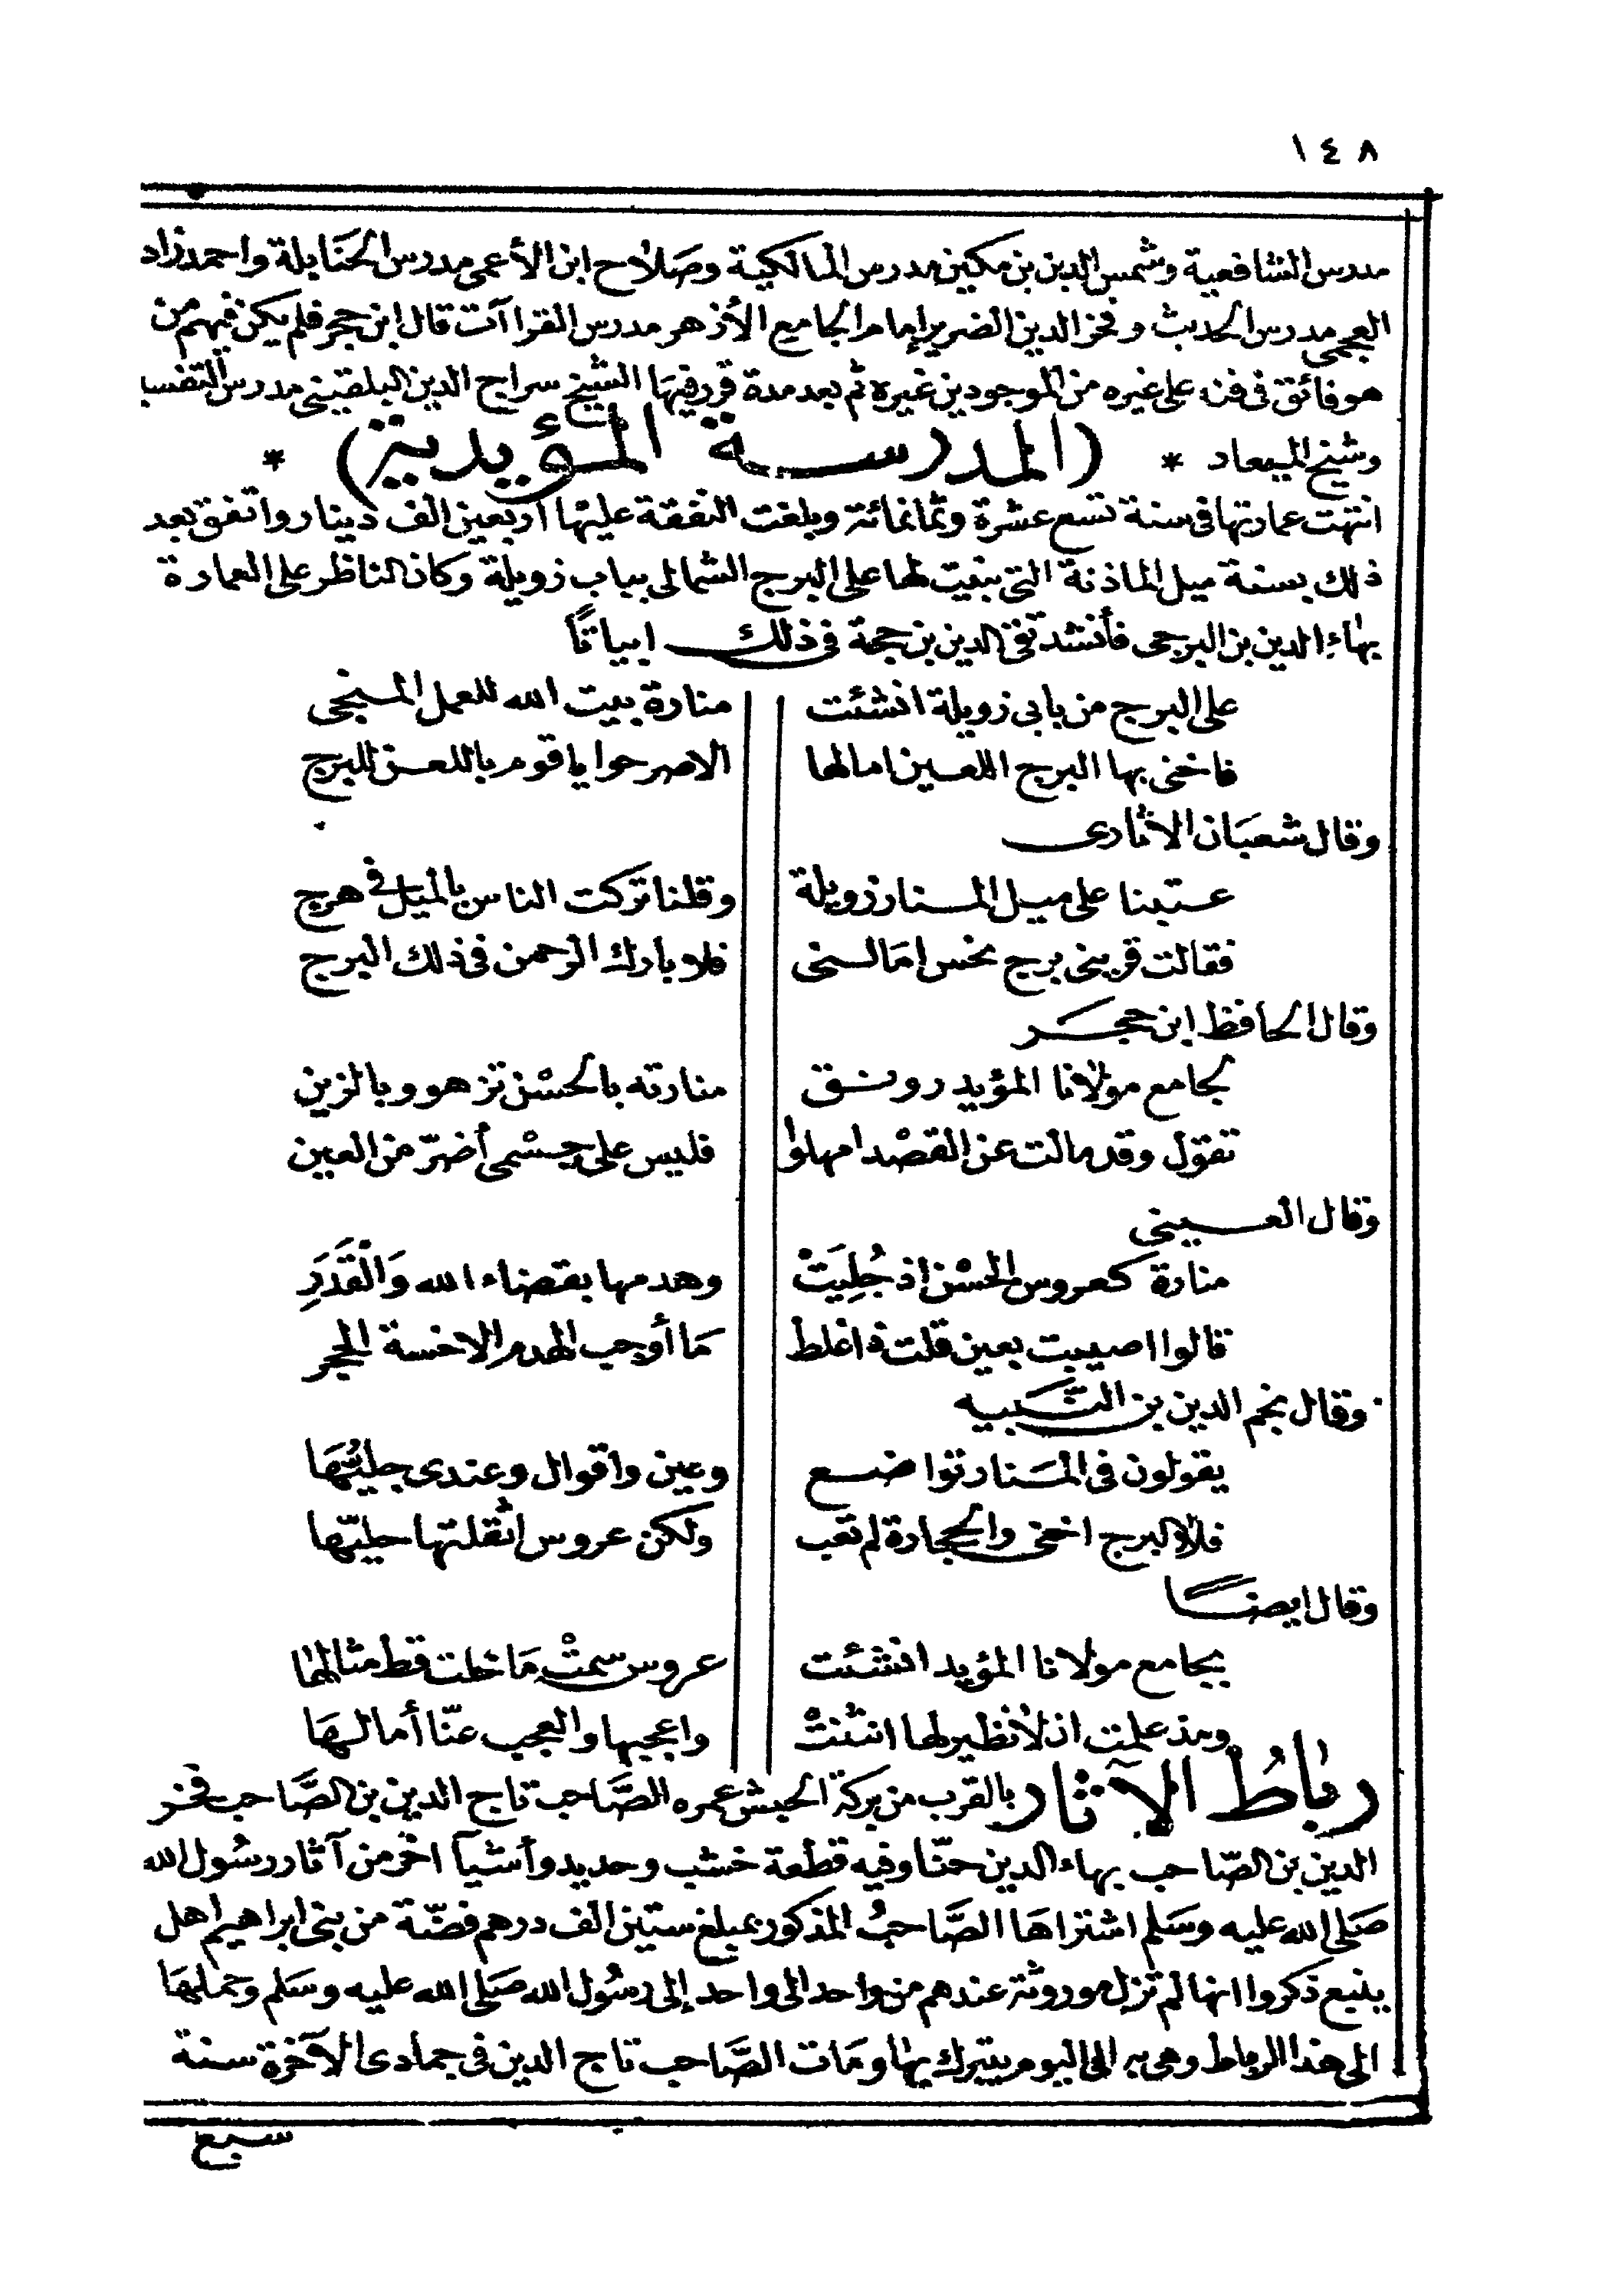 ١٤٨
مدرس الشافعية وشمس الدين بن مكين مدرس المالكية وصَلاح ابن الأعمى مدرس الحَنابلة واحمد زاد
العجمى مدرس الحديث وفخر الدين الضرير إمام الجامع الأزهر مدرس القراآت قال ابن حجر فلم يكن فيهم من
هو فائق فى فنه على غيره من الموجودين غيره ثم بعد مدة قرر فيها الشيخ سراج الدين البلقينى مدرس التفسير
وشيخ الميعاد * (المدرسة المؤيدية) *
انتهت عمارتها فى سنة تسع عشرة وثمانمائة وبلغت النفقة عليها أربعين الف دينار واتفق بعد
ذلك بسنة ميل الماذنة التى بنيت لها على البرج الشمالى بباب زويلة وكان الناظر على العمارة
بهاء الدين بن البرجى فأنشد تقى الدين بن حجة فى ذلك ابياتًا
على البرج من بابى زويلة انشئت منارة بيت الله للعمل المنجى
فاخنى بها البرج اللعين امالها الاصرحوا يا قوم باللعن للبرج
وقال شعبَان الاثارى
عتبنا على ميل المنار زويلة وقلنا تركت الناس بالميل فى هرج
فقالت قرينى برج نحس امَالنى فلا بارك الرحمن فى ذلك البرج
وقال الحافظ ابن حجر
لجامع مولانا المؤيد رونق منارته بالحسْن تزهو وبالزين
تقول وقد مالت عن القصْد امهلوا فليس على جسْمى أضرّ من العين
وقال العينى
منارة كعروس الحسْن اذ جُلِيَتْ وهدمها بقضاء الله وَالْقَدَرِ
قالوا اصيبت بعين قلت ذا غلط مَا أوجب الهدم الا خسة الحجر
وقال نجم الدين بن النبيه
يقولون فى المنار تواضع وعين واقوال وعندى جليّهَا
فلا البرج اخنى والحجارة لم تعب ولكن عروس اثقلتها حليّها
وقال ايضًا
بجامع مولانا المؤيد انشئت عروس سمتْ مَا خلت قط مثالها
ومذ علمت ان لا نظير لها انثنتْ واعجبها والعجب عنّا أمالهَا
رباطُ الآثار بالقرب من بركة الحبش عمره الصَّاحب تاج الدين بن الصَّاحب فخر
الدين بن الصّاحب بهاء الدين حنّا وفيه قطعة خشب وحديد وأشيآ اخر من آثار رسُول الله
صَلى الله عليه وسَلم اشتراهَا الصَّاحبُ المذكور بمبلغ ستين الف درهم فضّة من بنى ابراهيم اهل
ينبع ذكروا انها لم تزل موروثة عندهم من واحد الى واحد إلى رسُول الله صَلى الله عليه وسَلم وحملهَا
الى هذا الرباط وهى به الى اليوم يتبرك بها ومَات الصَّاحب تاج الدين فى جمادى الآخرة سنة
سبع